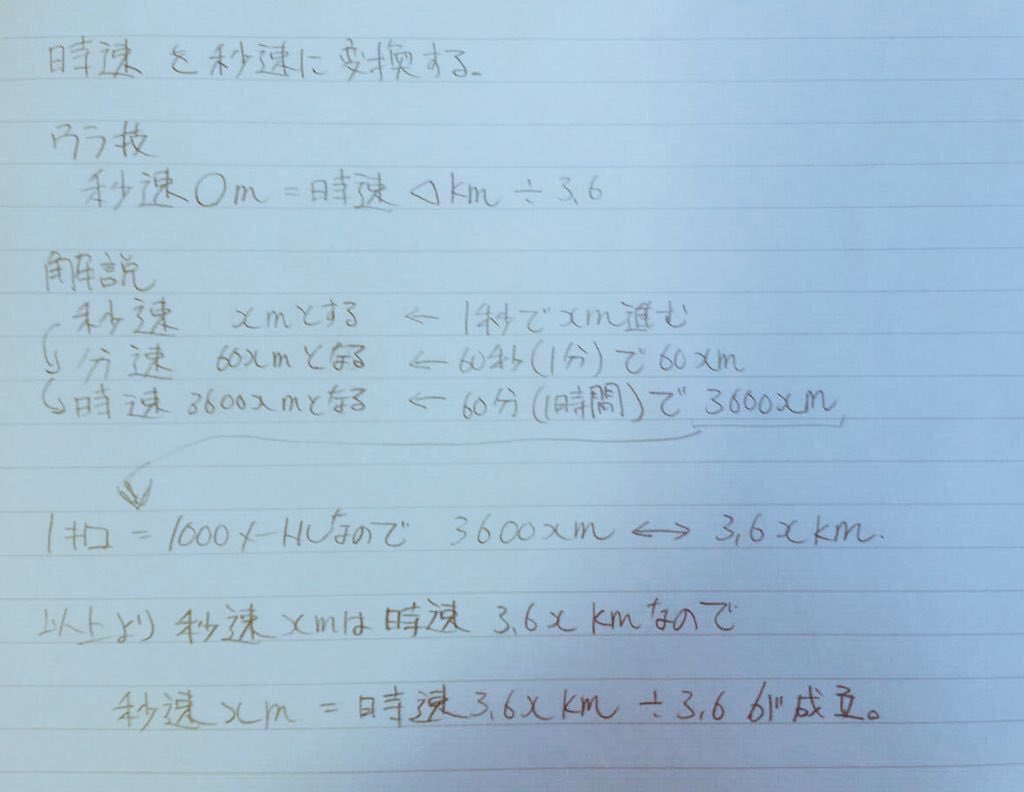 時速を秒速に変換する。
ウラ技
秒速〇m = 時速△km ÷ 3.6
解説
秒速 xmとする ← 1秒でxm進む
分速 60xmとなる ← 60秒(1分)で60xm
時速 3600xmとなる ← 60分(1時間)で 3600xm
1キロ = 1000メートルなので 3600xm ↔ 3.6x km.
以上より 秒速 xmは 時速 3.6x kmなので
秒速 xm = 時速 3.6x km ÷ 3.6 が成立。